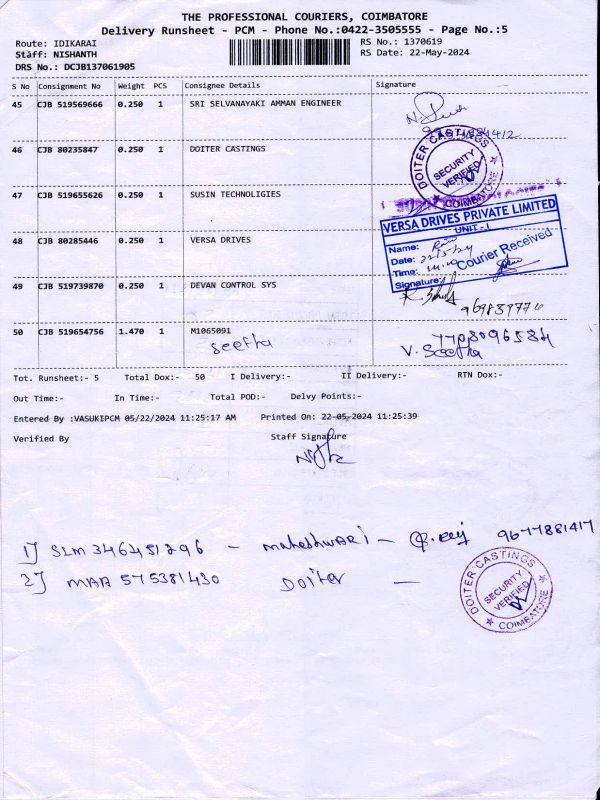 THE PROFESSIONAL COURIERS, COIMBATORE
Delivery Runsheet - PCM - Phone No.:0422-3505555 - Page No.:5
Route: IDIKARAI
RS No.: 1370619
Staff: NISHANTH
RS Date: 22-May-2024
DRS No.: DCJB137061905
S No Consignment No Weight PCS Consignee Details Signature
45 CJB 519569666 0.250 1 SRI SELVANAYAKI AMMAN ENGINEER
46 CJB 80235847 0.250 1 DOITER CASTINGS
DOITER CASTINGS
SECURITY
VERIFIED
COIMBATORE
47 CJB 519655626 0.250 1 SUSIN TECHNOLIGIES
VERSA DRIVES PRIVATE LIMITED
UNIT-I
48 CJB 80285446 0.250 1 VERSA DRIVES
Name:
Date: 22/5/24
Time:
Courier Received
Signature:
49 CJB 519739870 0.250 1 DEVAN CONTROL SYS
50 CJB 519654756 1.470 1 M1065091
seetha
7708096584
V. Seetha
Tot. Runsheet:- 5 Total Dox:- 50 I Delivery:- II Delivery:- RTN Dox:-
Out Time:- In Time:- Total POD:- Delvy Points:-
Entered By :VASUKIPCM 05/22/2024 11:25:17 AM Printed On: 22-05-2024 11:25:39
Verified By Staff Signature
1) SLM 346451296 - maheshwari - 9677881417
2) MAA 575381430 Doiter -
DOITER CASTINGS
SECURITY
VERIFIED
COIMBATORE